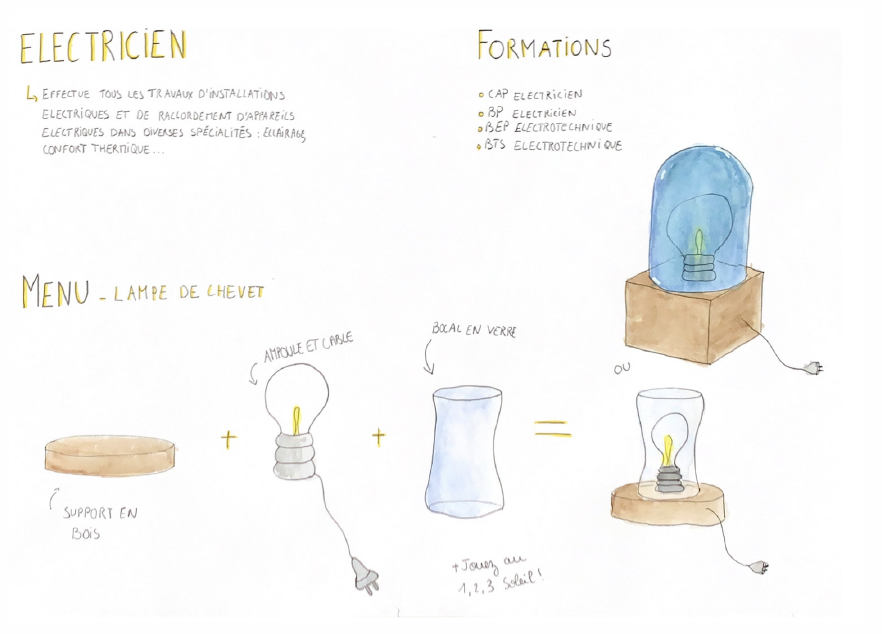 ELECTRICIEN
↳ EFFECTUE TOUS LES TRAVAUX D'INSTALLATIONS
ELECTRIQUES ET DE RACCORDEMENT D'APPAREILS
ELECTRIQUES DANS DIVERSES SPÉCIALITÉS : ÉCLAIRAGE,
CONFORT THERMIQUE...
FORMATIONS
• CAP ELECTRICIEN
• BP ELECTRICIEN
• BEP ELECTROTECHNIQUE
• BTS ELECTROTECHNIQUE
MENU - LAMPE DE CHEVET
AMPOULE ET CABLE
BOCAL EN VERRE
OU
+
+
=
SUPPORT EN
BOIS
+ Jouez au
1, 2, 3 Soleil !